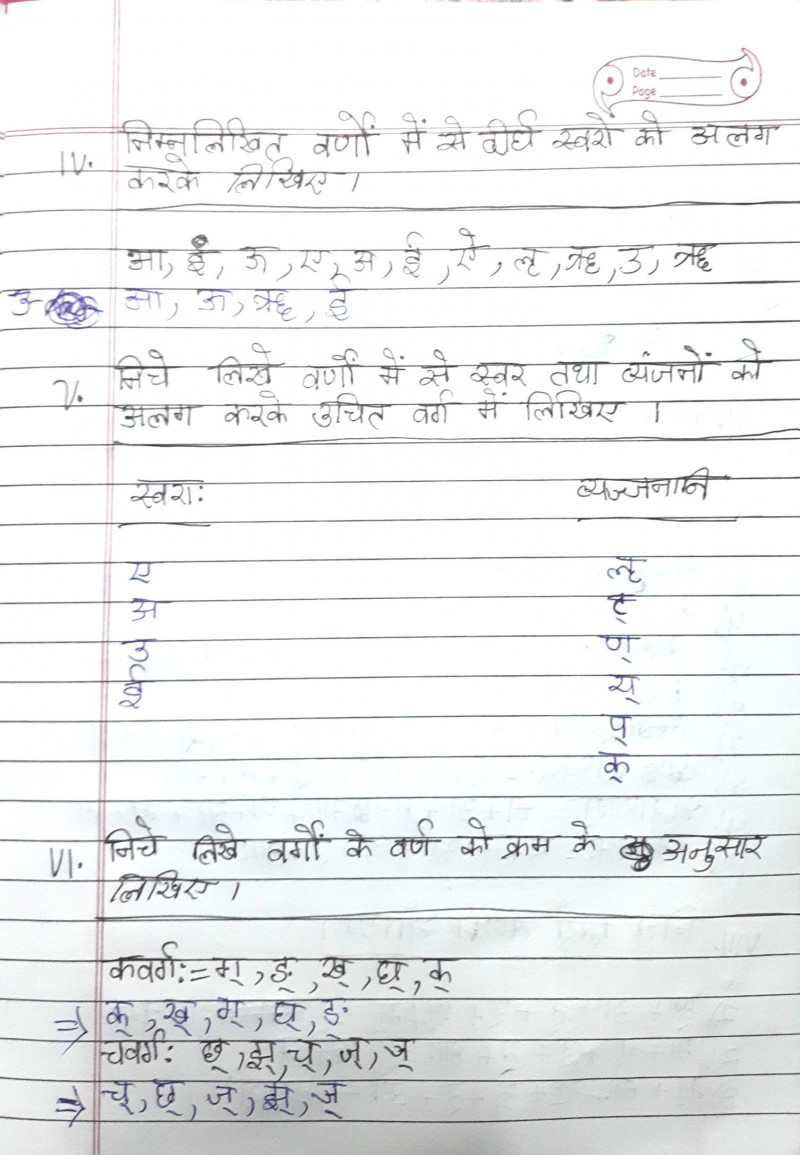 Date
Page
IV. निम्नलिखित वर्णों में से दीर्घ स्वरो को अलग
करके लिखिए ।
आ, ई, ऊ, ए, अ, ई, ऐ, लृ, ऋ, उ, ऋ
उ- आ, ऊ, ऋ, ई
V. निचे लिखे वर्णों में से स्वर तथा व्यंजनों को
अलग करके उचित वर्ग में लिखिए ।
स्वराः व्यञ्जनानि
ए लृ
अ ट्
उ ण्
ई य्
प्
क्
VI. निचे लिखे वर्गों के वर्ण को क्रम के अनुसार
लिखिए ।
कवर्ग:= ग्, ङ्, ख्, घ्, क्
⇒ क्, ख्, ग्, घ्, ङ्
चवर्ग: छ्, झ्, च्, ज्, ञ्
⇒ च्, छ्, ज्, झ्, ञ्